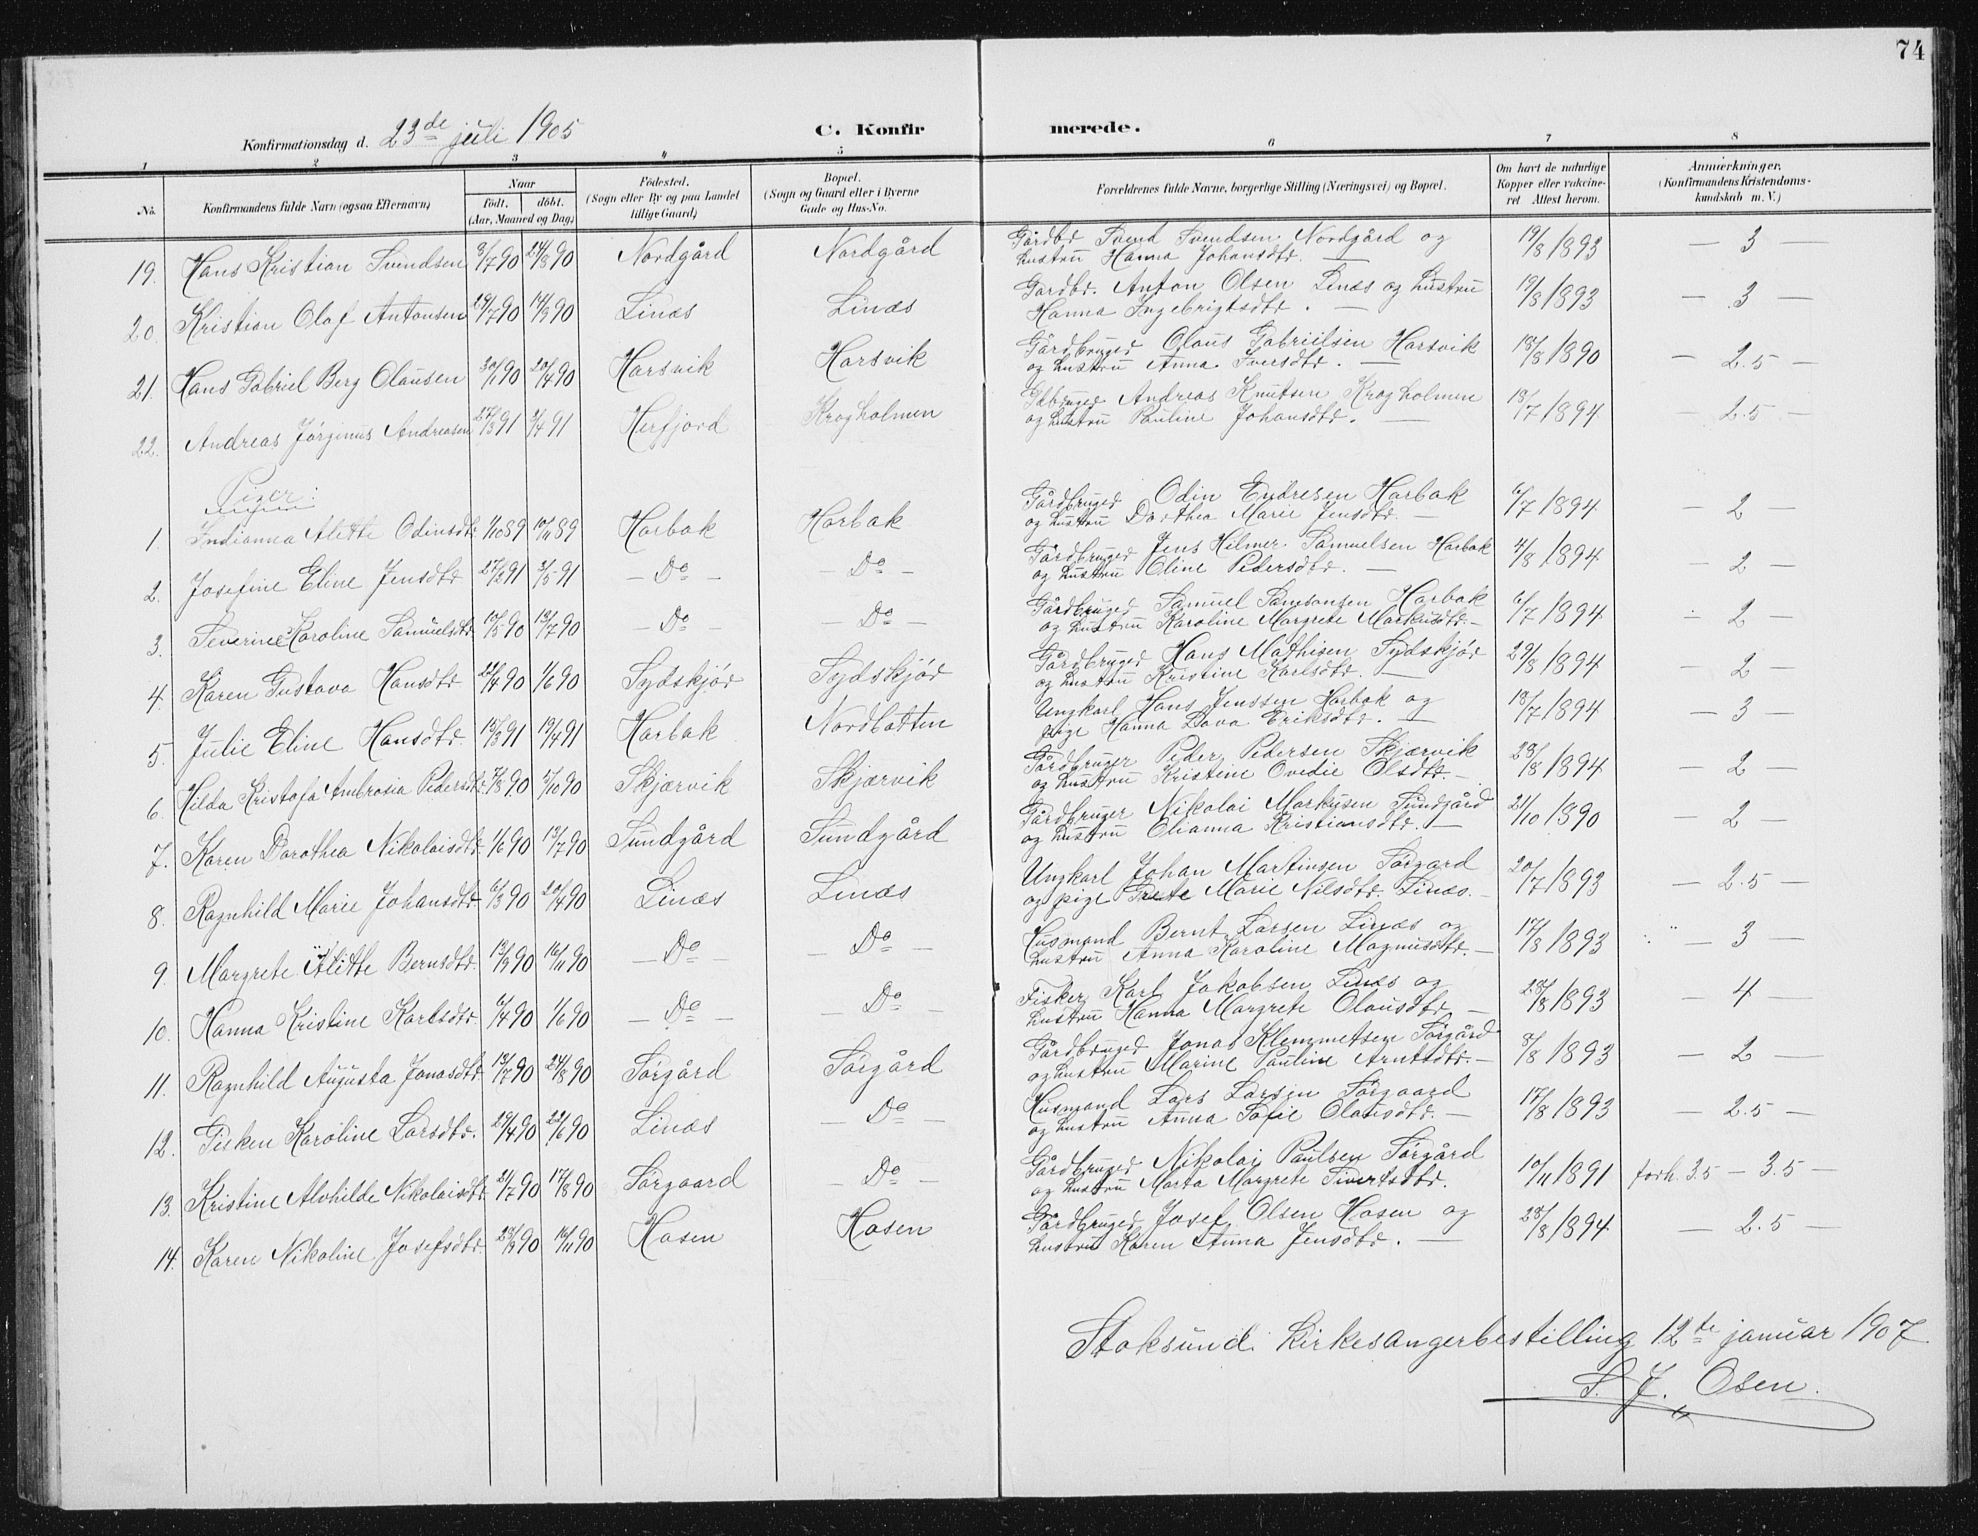 74
Konfirmationsdag d. 23de juli 1905
C. Konfirmerede.
1 2 3 4 5 6 7 8
No. Konfirmandens fulde Navn (ogsaa Efternavn) Naar født. døbt. (Aar, Maaned og Dag) Fødested. (Sogn eller By og paa Landet tillige Gaard) Bopæl. (Sogn og Gaard eller i Byerne Gade og Hus-No. Forældrenes fulde Navne, borgerlige Stilling (Næringsvei) og Bopæl. Om havt de naturlige Kopper eller vakcineret Attest herom. Anmærkninger. (Konfirmandens Kristendomskundskab m. V.)
19. Hans Kristian Svendsen 9/7 90 24/8 90 Nordgård Nordgård Gårdbr Svend Svendsen Nordgård og hustru Hanna Johansdtr. — 19/8 1893 — 3 —
20. Kristian Olaf Antonsen 29/7 90 14/9 90 Linæs Linæs Gårdbr. Anton Olsen Linæs og hustru Hanna Ingebrigtsdtr. — 19/8 1893 — 3 —
21. Hans Gabriel Berg Olausen 30/1 90 20/4 90 Harsvik Harsvik Gårdbruger Olaus Gabrielsen Harsvik og hustru Anna Iversdtr. — 18/8 1890 — 2.5 —
22. Andreas Jørginus Andreasen 27/3 91 3/4 91 Herfjord Kragholmen Gbruger Andreas Knutsen Kragholmen og hustru Pauline Johansdtr. — 18/7 1894 2.5 —
Piger:
1. Indianna Alette Odinsdtr. 1/10 89 10/11 89 Harbak Harbak Gårdbruger Odin Endresen Harbak og hustru Dorthea Marie Jensdtr. — 6/7 1894 — 2 —
2. Josefine Eline Jensdtr 27/2 91 3/5 91 — Do — — Do — Gårdbruger Jens Hilmer Samuelsen Harbak og hustru Oline Pedersdtr. — 4/8 1894 — 2 —
3. Severine Karoline Samuelsdtr 10/5 90 13/7 90 — Do — — Do — Gårdbruger Samuel Samsonsen Harbak og hustru Karoline Margrete Markusdtr. — 6/7 1894 — 2 —
4. Karen Gustava Hansdtr 22/4 90 1/6 90 Sydskjør Sydskjør Gårdbruger Hans Mathisen Sydskjør og hustru Kristine Karlsdtr. — 29/8 1894 — 2 —
5. Julie Eline Hansdtr. 15/3 91 19/4 91 Harbak Nordbotten Ungkarl Hans Jenssen Harbak og pige Hanna Lava Eriksdtr. — 18/7 1894 — 3 —
6. Hilda Kristofa Ambrosia Pedersdtr. 7/8 90 5/10 90 Skjærvik Skjærvik Gårdbruger Peder Pedersen Skjærvik og hustru Kristine Ovedie Olsdtr. — 28/8 1894 — 2 —
7. Karen Dorothea Nikolaisdtr. 1/6 90 13/7 90 Sundgård Sundgård Gårdbruger Nikolai Markusen Sundgård og hustru Olianna Kristiansdtr. — 21/10 1890 — 2 —
8. Ragnhild Marie Johansdtr. 6/3 90 20/4 90 Linæs Linæs Ungkarl Johan Martinsen Sørgard og pige Marie Nilsdtr. Linæs. 20/7 1893 — 2.5 —
9. Margrete Alitte Berntsdtr. 13/9 90 16/11 90 — Do — — Do — Husmand Bernt Larsen Linæs og hustru Anna Karoline Magnusdtr. — 17/8 1893 — 3 —
10. Hanna Kristine Karlsdtr 6/4 90 1/6 90 — Do — — Do — Fisker Karl Jakobsen Linæs og hustru Hanna Margrete Olausdtr — 28/8 1893 — 4 —
11. Ragnhild Augusta Jonasdtr 13/7 90 24/8 90 Sørgård Sørgård Gårdbruger Jonas Klemmetsen Sørgård og hustru Marine Pauline Arntsdtr. — 8/8 1893 — 2 —
12. Gisken Karoline Larsdtr. 29/4 90 22/6 90 Linæs — Do — Husmand Lars Larsen Sørgaard og hustru Anna Sofie Olausdtr. — 17/8 1893 — 2.5 —
13. Kristine Alvhilde Nikolaisdtr 21/7 90 17/8 90 Sørgaard — Do — Gårdbruger Nikolai Paulsen Sørgård og hustru Marta Margrete Sivertsdtr. 10/11 1891 forh. 3.5 — 3.5 —
14. Karen Nikoline Josefsdtr 28/9 90 16/11 90 Hosen Hosen Gårdbruger Josef Olsen Hosen og hustru Karen Anna Jensdtr. — 28/8 1894 — 2.5 —
Stoksund kirkesangerbestilling 12te januar 1907.
S. J. Osen.